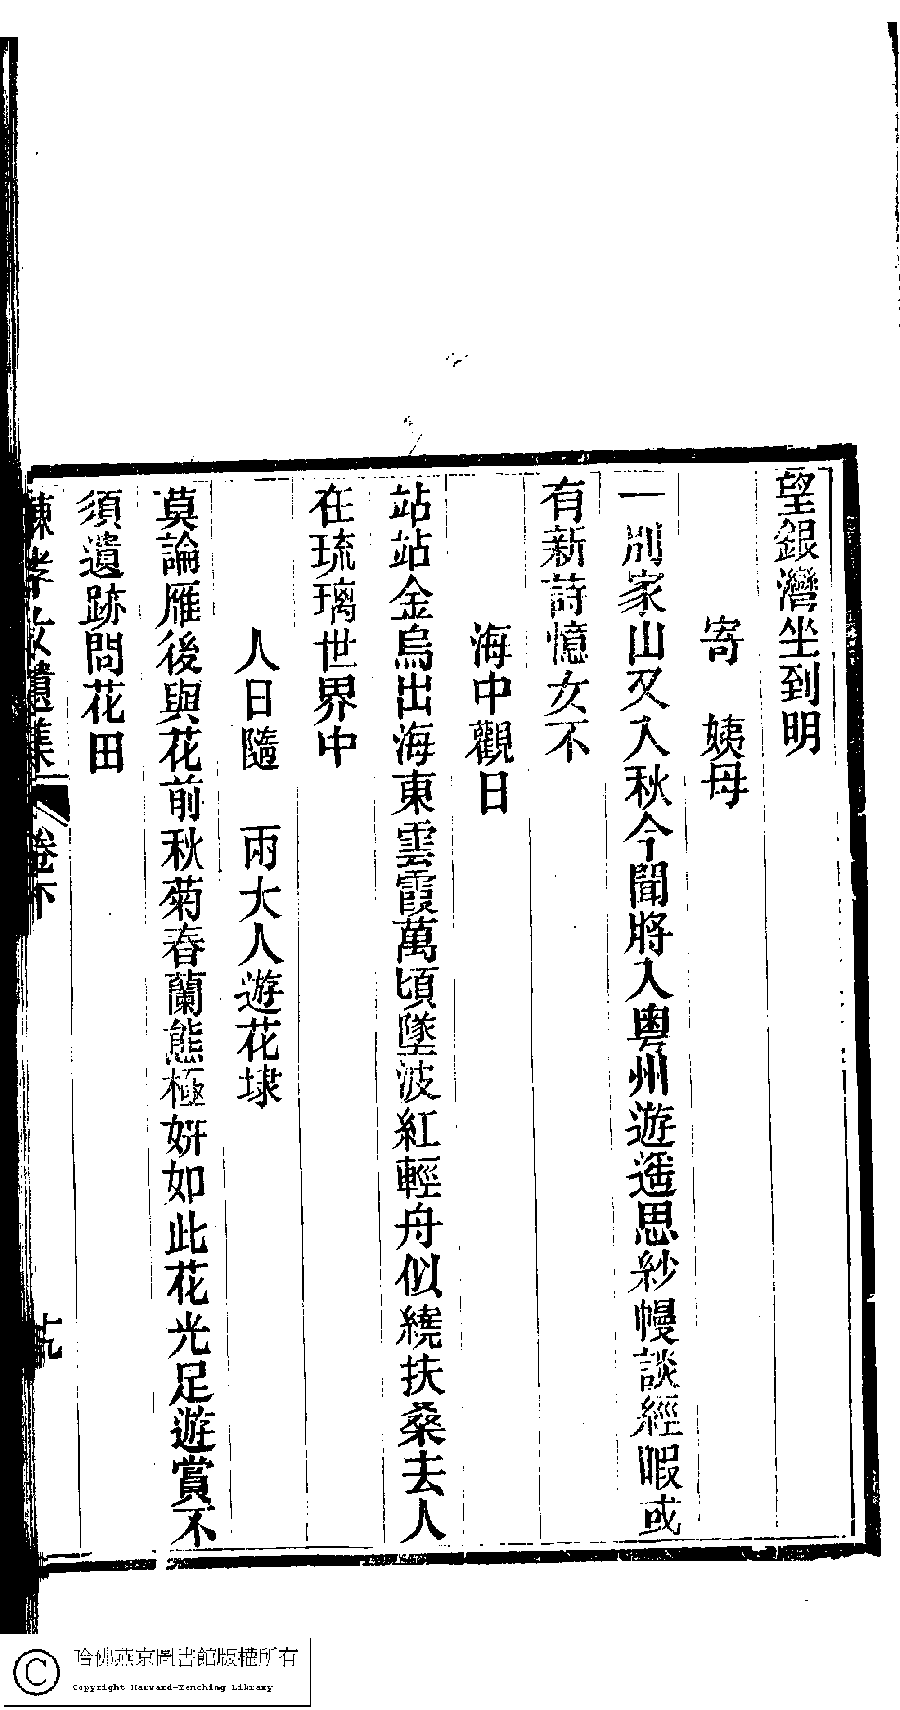 望銀灣坐到明
寄　姨母
一別家山又入秋今聞將入粵州遊遥思紗幔談經暇或
有新詩憶女不
海中觀日
站站金烏出海東雲霞萬頃墜波紅輕舟似繞扶桑去人
在琉璃世界中
人日隨　兩大人遊花埭
莫論雁後與花前秋菊春蘭態極妍如此花光足遊賞不
須遺跡問花田
陳孝女遺集　卷下
哈佛燕京圖書館版權所有
Copyright Harvard-Yenching Library